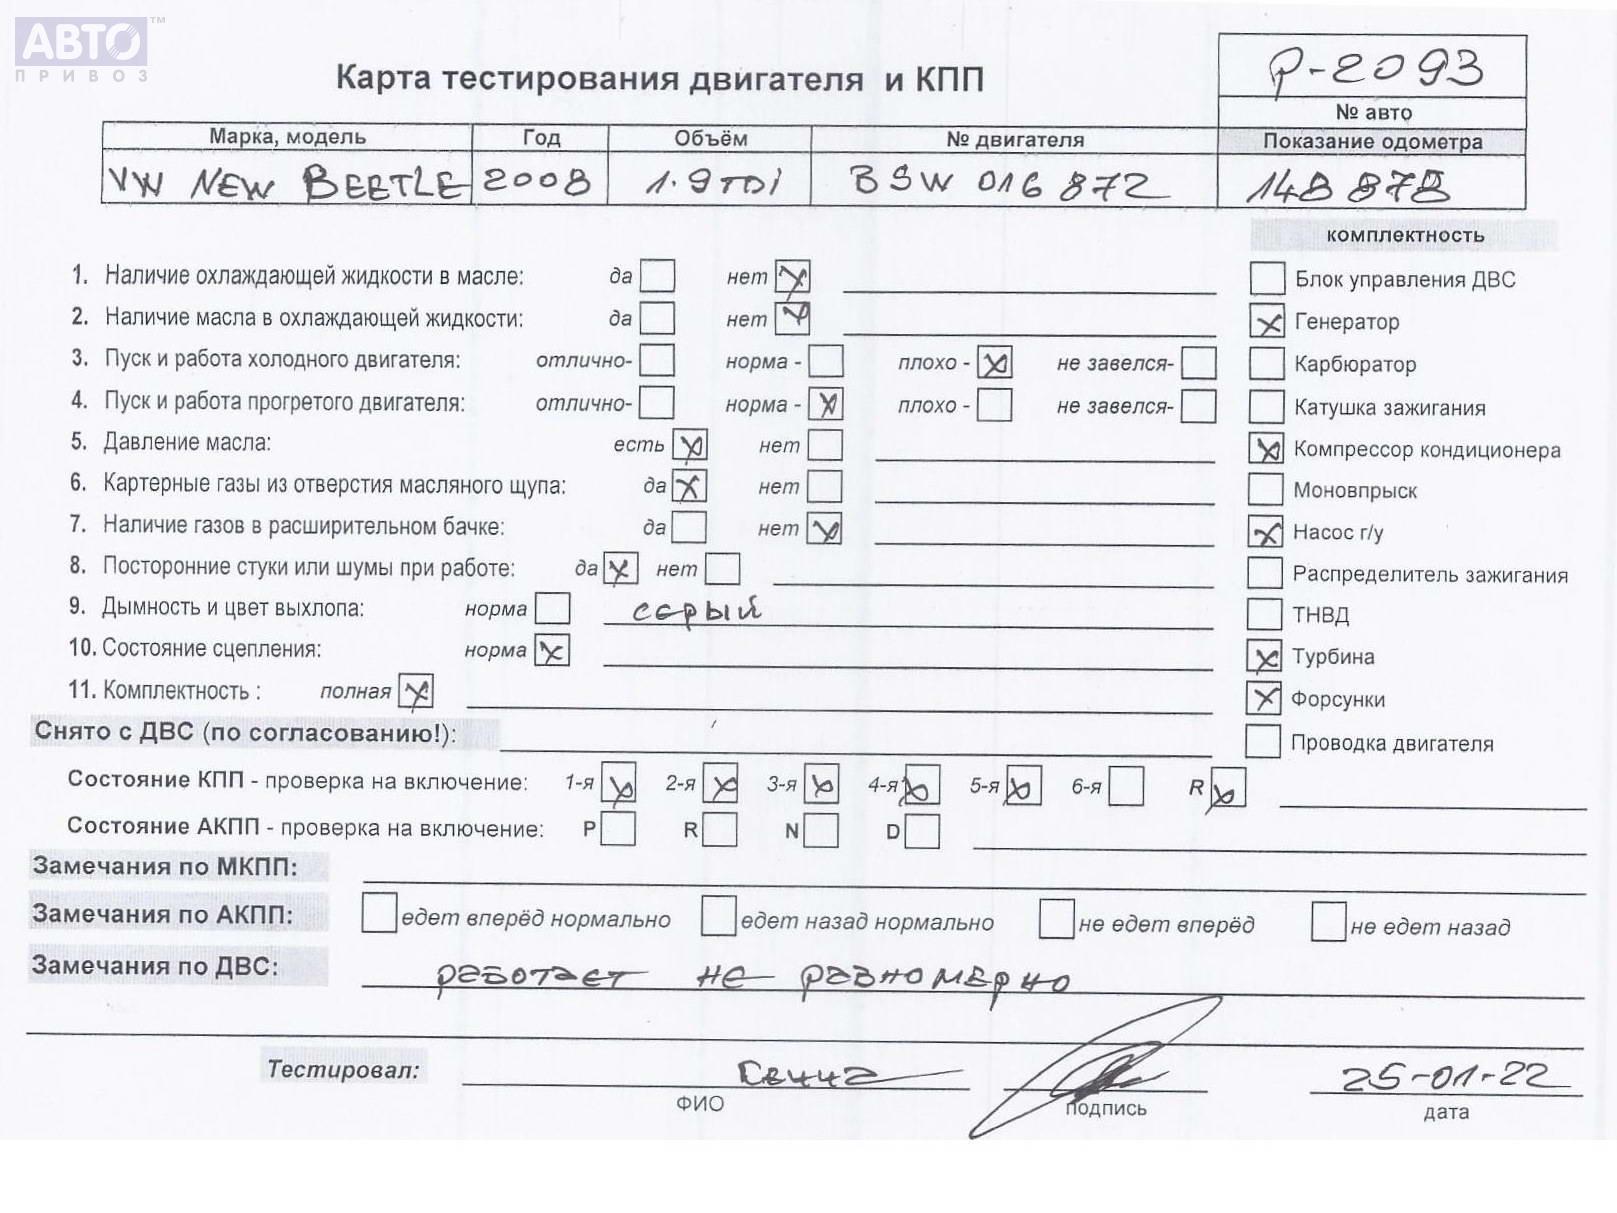 АВТО™
ПРИВОЗ
Карта тестирования двигателя и КПП
P-2093
№ авто
Марка, модель Год Объём № двигателя Показание одометра
VW NEW BEETLE 2008 1.9TDI BSW 016872 148878
комплектность
1. Наличие охлаждающей жидкости в масле: да нет
Блок управления ДВС
2. Наличие масла в охлаждающей жидкости: да нет
Генератор
3. Пуск и работа холодного двигателя: отлично- норма - плохо - не завелся-
Карбюратор
4. Пуск и работа прогретого двигателя: отлично- норма - плохо - не завелся-
Катушка зажигания
5. Давление масла: есть нет
Компрессор кондиционера
6. Картерные газы из отверстия масляного щупа: да нет
Моновпрыск
7. Наличие газов в расширительном бачке: да нет
Насос г/у
8. Посторонние стуки или шумы при работе: да нет
Распределитель зажигания
9. Дымность и цвет выхлопа: норма серый
ТНВД
10. Состояние сцепления: норма
Турбина
11. Комплектность : полная
Форсунки
Снято с ДВС (по согласованию!):
Проводка двигателя
Состояние КПП - проверка на включение: 1-я 2-я 3-я 4-я 5-я 6-я R
Состояние АКПП - проверка на включение: P R N D
Замечания по МКПП:
Замечания по АКПП: едет вперёд нормально едет назад нормально не едет вперёд не едет назад
Замечания по ДВС: работает не равномерно
Тестировал: 25-01-22
ФИО подпись дата